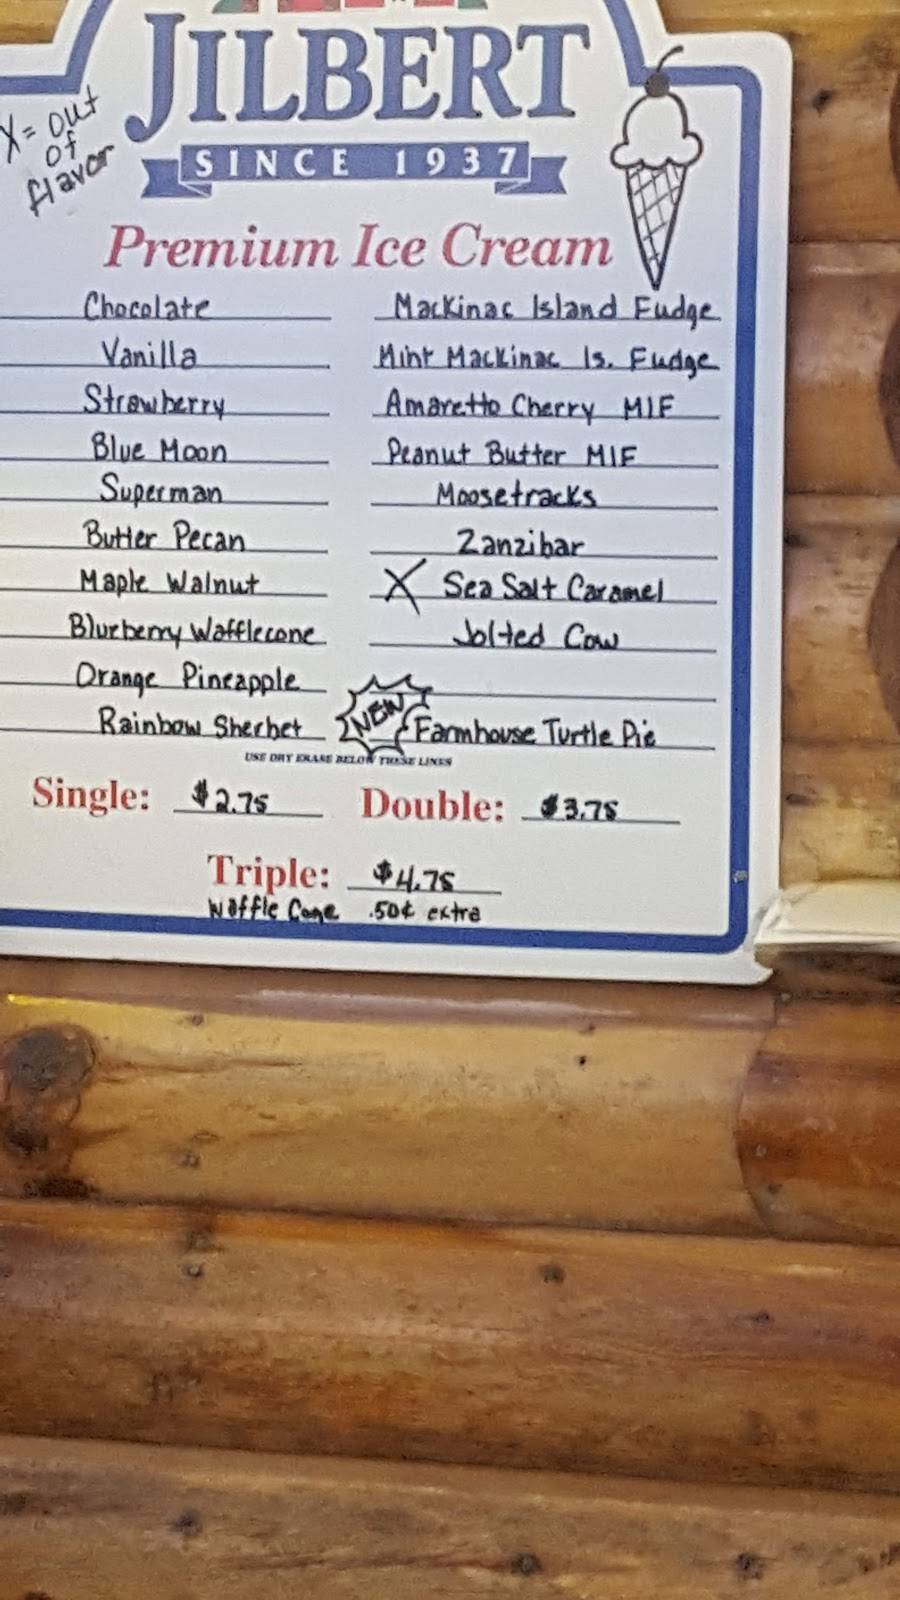 JILBERT
SINCE 1937
X = out
of
flavor
Premium Ice Cream
Chocolate
Vanilla
Strawberry
Blue Moon
Superman
Butter Pecan
Maple Walnut
Blueberry Wafflecone
Orange Pineapple
Rainbow Sherbet
Mackinac Island Fudge
Mint Mackinac Is. Fudge
Amaretto Cherry MIF
Peanut Butter MIF
Moosetracks
Zanzibar
X Sea Salt Caramel
Jolted Cow
NEW Farmhouse Turtle Pie
USE DRY ERASE BELOW THESE LINES
Single: $2.75 Double: $3.75
Triple: $4.75
Waffle Cone .50¢ extra